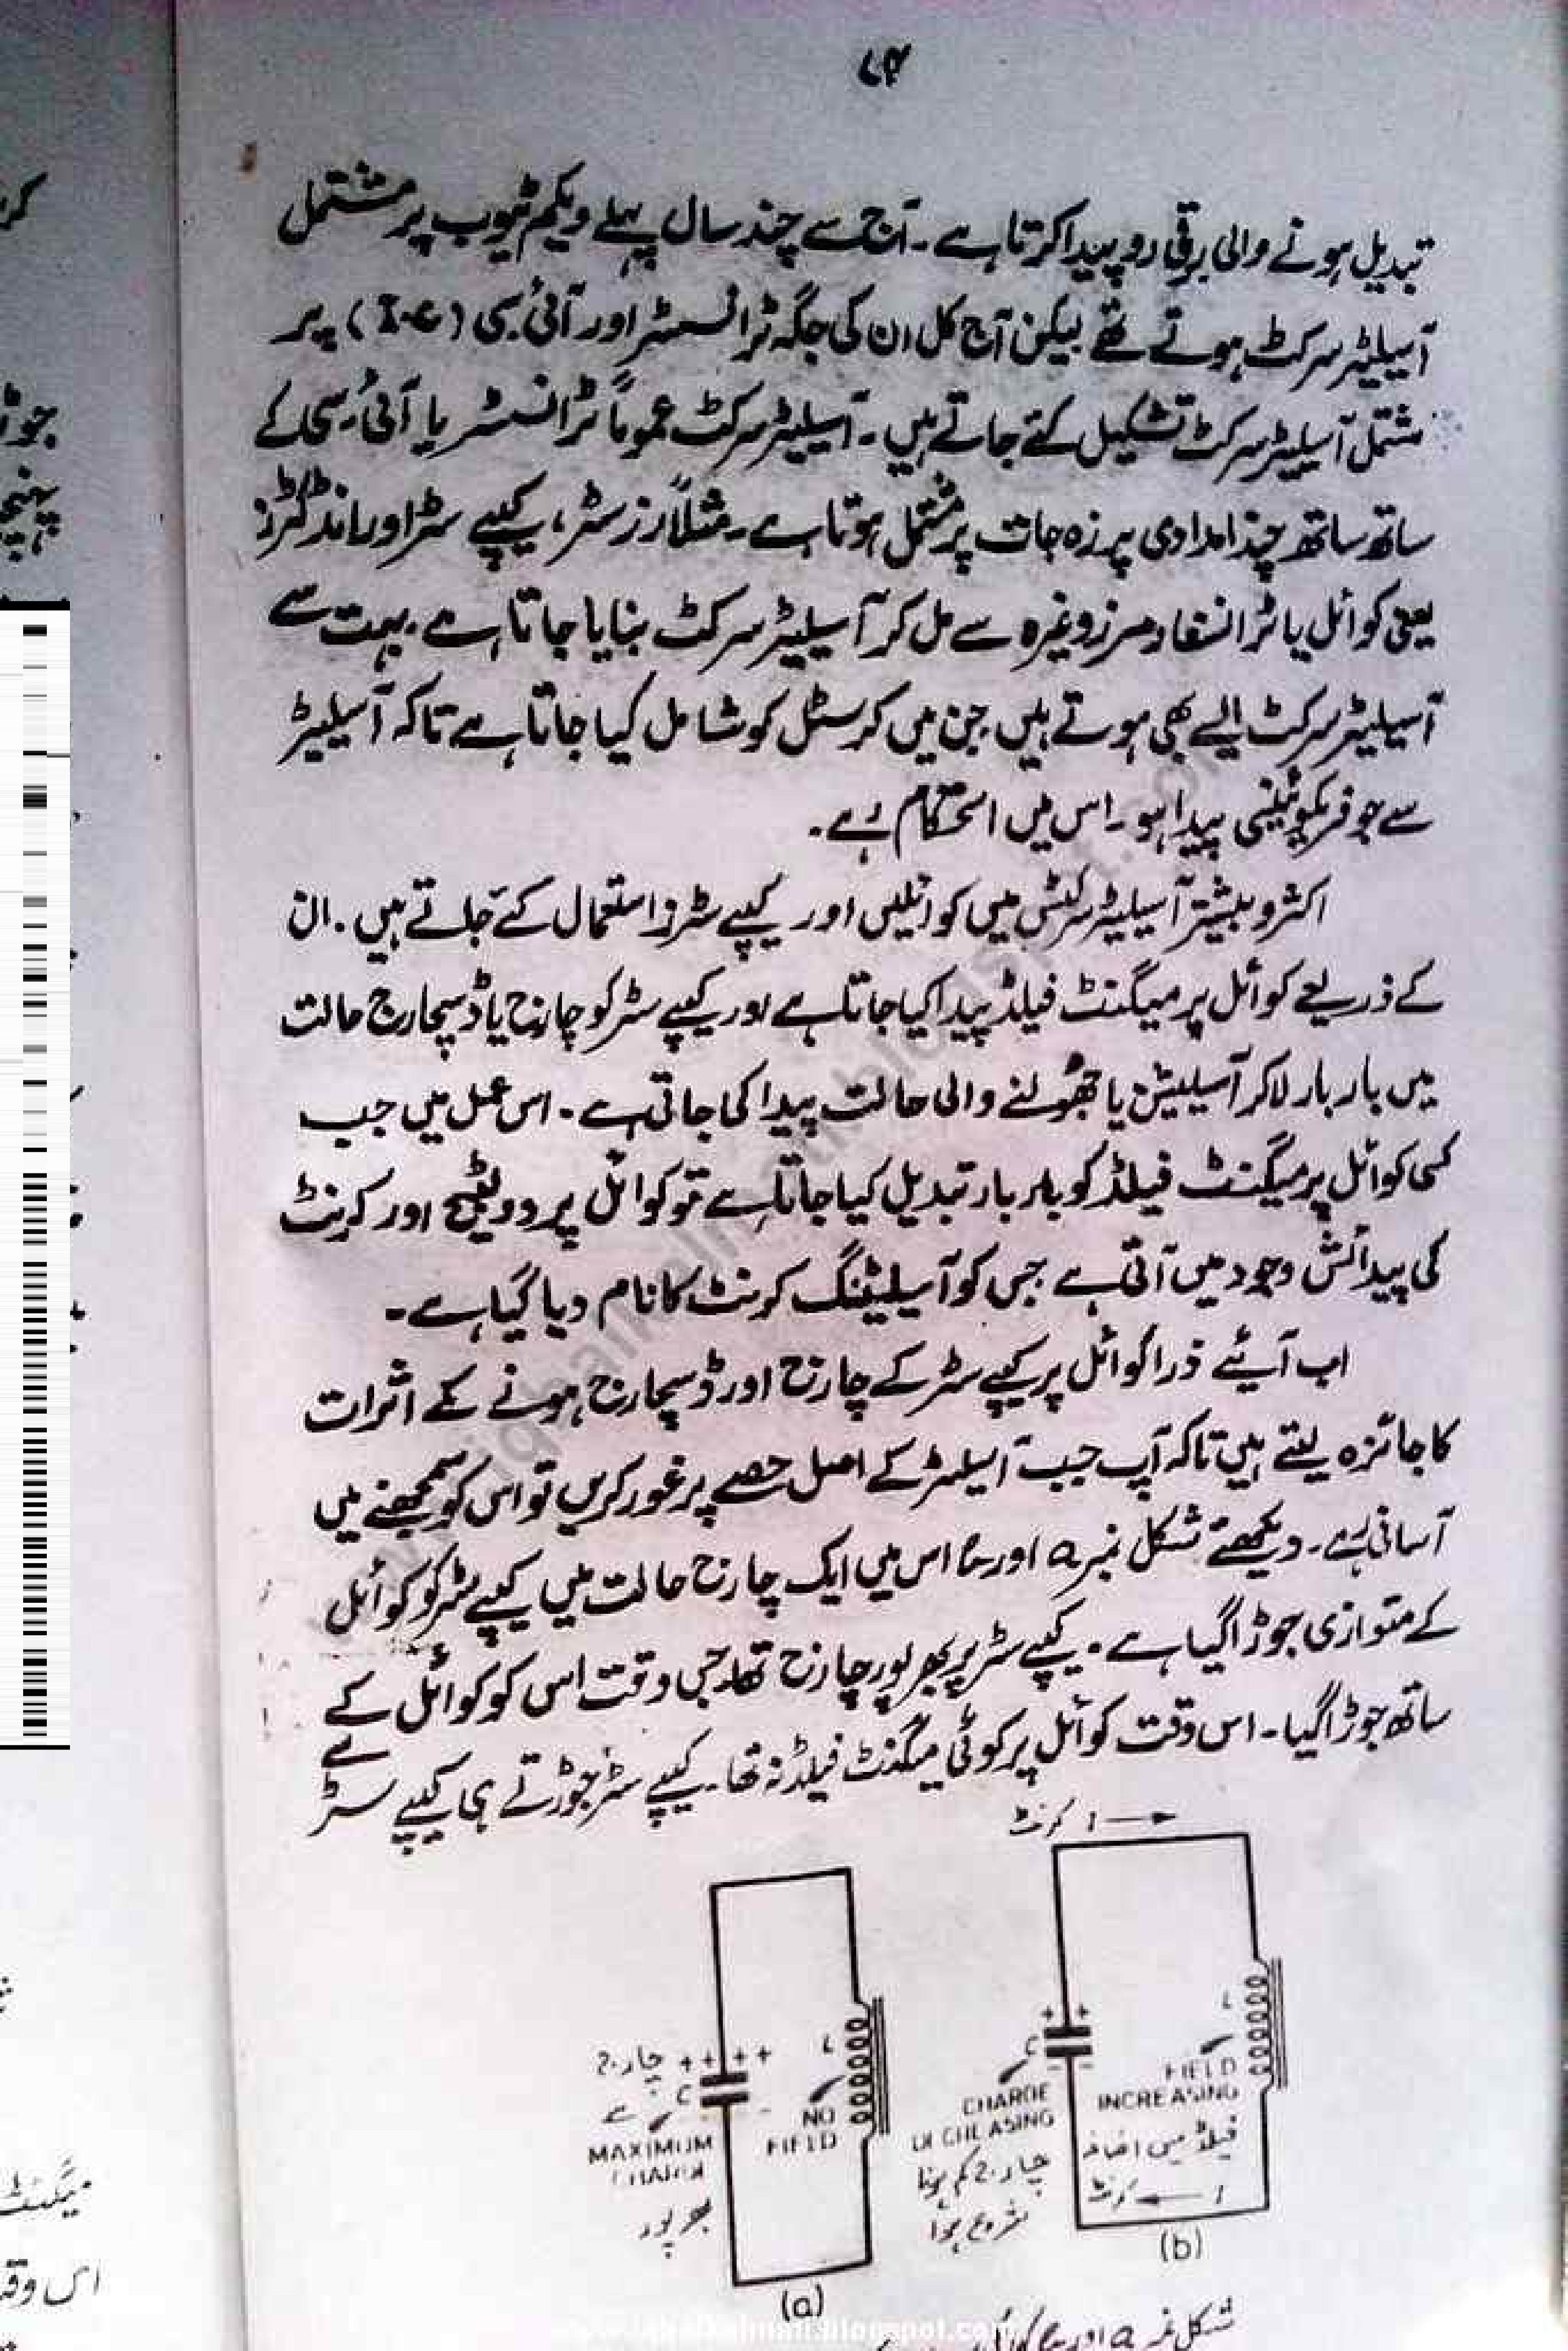 تبدیل ہونے والی برقی رو پیدا کرتا ہے ۔ آج سے چند سال پہلے ویکم ٹیوب پر مشتمل
آسیلیٹر سرکٹ ہوتے تھے لیکن آج کل ان کی جگہ ٹرانسسٹر اور آئی سی (I.C) پر
مشتمل آسیلیٹر سرکٹ تشکیل کئے جاتے ہیں ۔ آسیلیٹر سرکٹ عموماً ٹرانسسٹر یا آئی سی کے
ساتھ ساتھ چند امدادی پرزہ جات پر مشتمل ہوتا ہے ۔ مثلاً رزسٹر، کیپے سٹر اور انڈکٹرز
یعنی کوائل یا ٹرانسفارمرز وغیرہ سے مل کر آسیلیٹر سرکٹ بنایا جاتا ہے ۔ بہت سے
آسیلیٹر سرکٹ ایسے بھی ہوتے ہیں جن میں کرسٹل کو شامل کیا جاتا ہے تاکہ آسیلیٹر
سے جو فریکوئینسی پیدا ہو ۔ اس میں استحکام رہے ۔
اکثر و بیشتر آسیلیٹر سرکٹس میں کوائلیں اور کیپے سٹرز استعمال کئے جاتے ہیں ۔ ان
کے ذریعے کوائل پر میگنٹ فیلڈ پیدا کیا جاتا ہے اور کیپے سٹر کو چارج یا ڈسچارج حالت
میں بار بار لا کر آسیلیشن یا جھولنے والی حالت پیدا کی جاتی ہے ۔ اس عمل میں جب
کسی کوائل پر میگنٹ فیلڈ کو بار بار تبدیل کیا جاتا ہے تو کوائل پر وولٹیج اور کرنٹ
کی پیدائش وجود میں آتی ہے جس کو آسیلیٹنگ کرنٹ کا نام دیا گیا ہے ۔
اب آیئے ذرا کوائل پر کیپے سٹر کے چارج اور ڈسچارج ہونے کے اثرات
کا جائزہ لیتے ہیں تاکہ آپ جب آسیلیٹر کے اصل حصے پر غور کریں تو اس کو سمجھنے میں
آسانی رہے ۔ دیکھئے شکل نمبر a اور b اس میں ایک چارج حالت میں کیپے سٹر کو کوائل
کے متوازی جوڑا گیا ہے ۔ کیپے سٹر پر بھرپور چارج تھا، جس وقت اس کو کوائل کے
ساتھ جوڑا گیا ۔ اس وقت کوائل پر کوئی میگنٹ فیلڈ نہ تھا ۔ کیپے سٹر جوڑتے ہی کیپے سٹر سے
کرنٹ I
چارج + + + +
C
ہے
MAXIMUM
CHARGE
بھرپور
L
NO
FIELD
(a)
+ +
C
CHARGE
DECREASING
چارج کم ہونا
شروع ہوا
L
FIELD
INCREASING
فیلڈ میں اضافہ
کرنٹ I
(b)
شکل نمبر a اور b